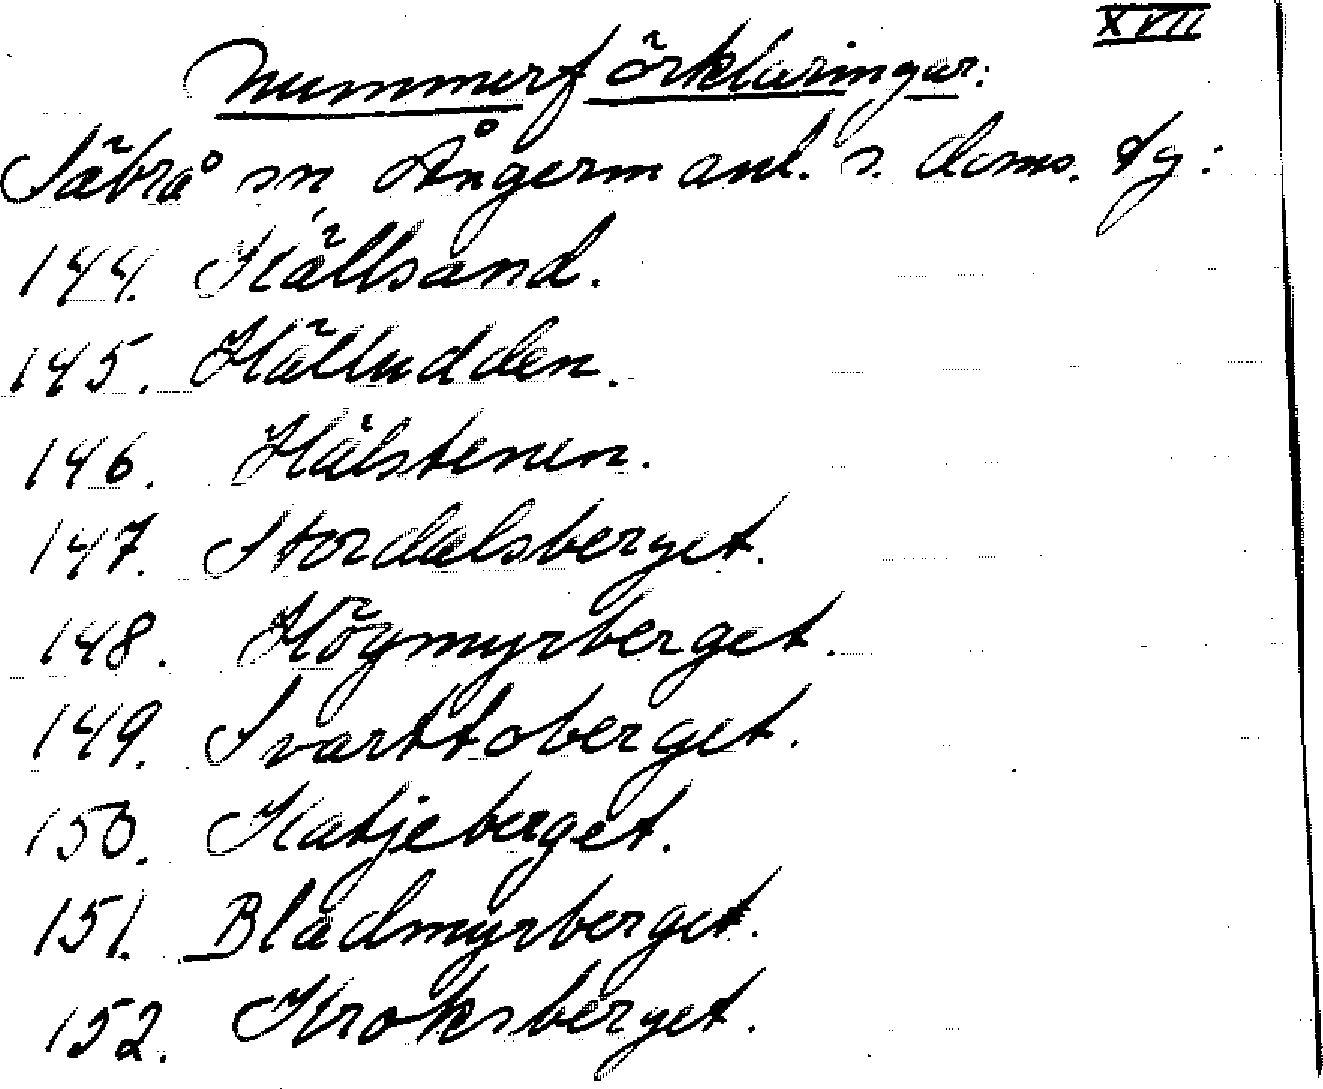 XVII
Nummerförklaringar:
Säbrå sn Ångermanl. s. doms. tg:
144. Källsand.
145. Hälludden.
146. Hälstenen.
147. Stordalsberget.
148. Högmyrberget.
149. Svarttoberget.
150. Katjeberget.
151. Bladmyrberget.
152. Kroksberget.